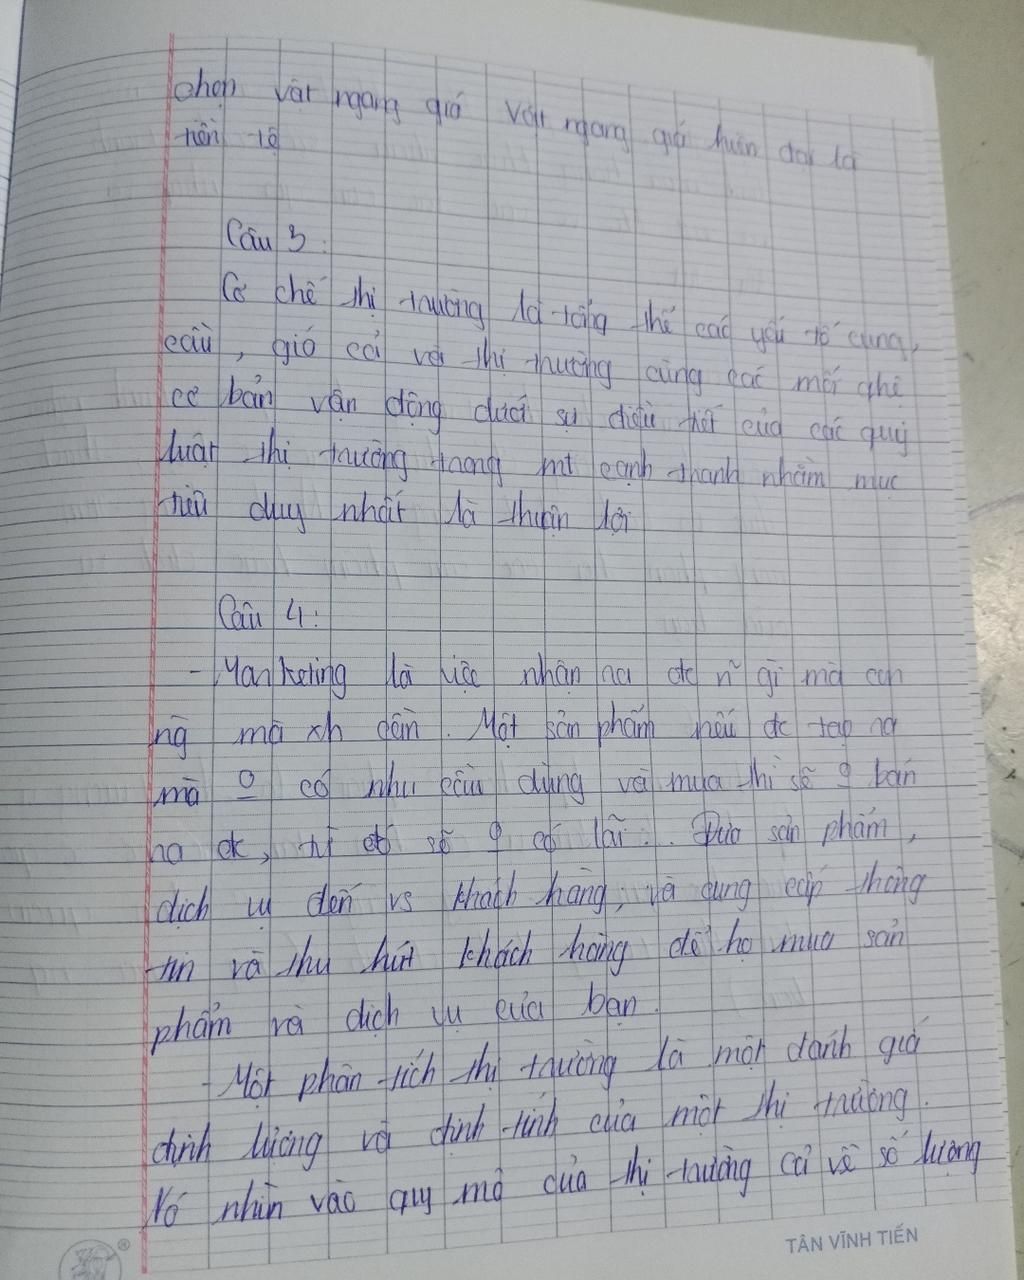 chọn vật ngang giá vật ngang giá hiện đại là
tiền tệ
Câu 3:
Cơ chế thị trường là tổng thể các yếu tố cung,
cầu, giá cả và thị trường cùng các mối qhệ
cơ bản vận động dưới sự điều tiết của các quy
luật thị trường trong mt cạnh tranh nhằm mục
tiêu duy nhất là thuận lợi
Câu 4:
- Marketing là việc nhận ra đc n~ gì mà con
ng mà xh cần. Một sản phẩm nếu đc tạo ra
mà o có nhu cầu dùng và mua thì sẽ o bán
ra đc, từ đó sẽ o có lãi. Đưa sản phẩm,
dịch vụ đến vs khách hàng, và cung cấp thông
tin và thu hút khách hàng để họ mua sản
phẩm và dịch vụ của bạn.
- Một phân tích thị trường là một đánh giá
định lượng và định tính của một thị trường.
Nó nhìn vào quy mô của thị trường cả về số lượng
TÂN VĨNH TIẾN